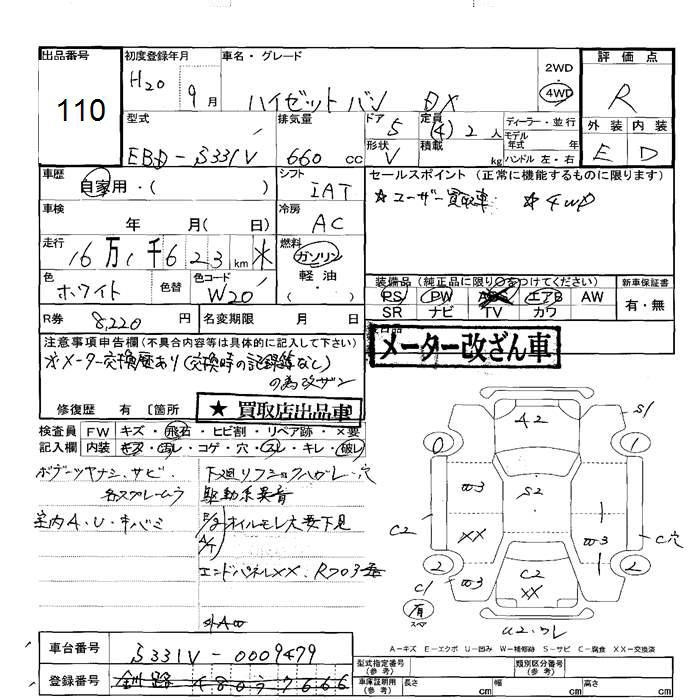 出品番号 初度登録年月 車名・グレード 評価点
110 H20 9月 ハイゼットバン DX 2WD 4WD R
型式 排気量 ドア 定員 ディーラー・並行 外装 内装
EBD-S331V 660 cc 5 (4) 2人 モデル年式 年 E D
形状 V 積載 kg ハンドル 左・右
車歴 自家用・( ) シフト IAT セールスポイント (正常に機能するものに限ります)
☆ユーザー買取車 ☆4WD
車検 年 月( 日) 冷房 AC
走行 16万1千623km 燃料 ガソリン 軽油・( )
色 ホワイト 色替 色コード W20
装備品(純正品に限り○をつけてください) 新車保証書
PS PW ABS エアB AW 有・無
SR ナビ TV カワ
R券 8,220円 名変期限 月 日
メーター改ざん車
注意事項申告欄(不具合内容等は具体的に記入して下さい)
※メーター交換歴あり(交換時の記録等なし)
の為改ザン
修復歴 有〔箇所
★買取店出品車
検査員記入欄 FW キズ・飛石・ヒビ割・リペア跡・×要
内装 キズ・汚レ・コゲ・穴・スレ・キレ・破レ
サビ・ 下廻リフショクハガレ・穴
駆動系異音
室内A、U・キバミ オイルモレ大要下見
A/T
エンドパネルXX、
外A
A2 S1
0 1
W3 S2
C2 XX W3 C穴
2 W3 C2 XX 2
C1
有
スペア
A-キズ E-エクボ U-凹み W-補修跡 S-サビ C-腐食 XX-交換済
車台番号 S331V-0009479
型式指定番号(参考) 類別区分番号(参考)
登録番号 釧路480
車庫証明用(参考) 長さ cm 幅 cm 高さ cm